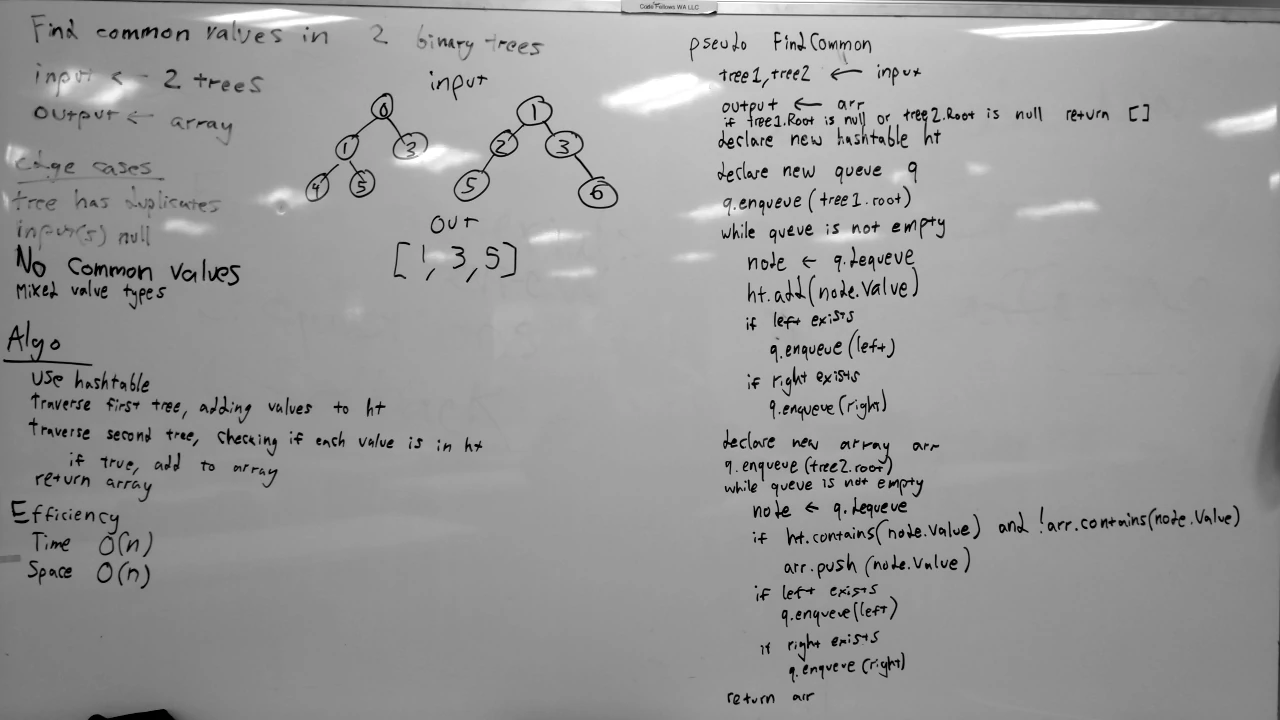 Code Fellows WA LLC
Find common values in 2 binary trees
input ← 2 trees
output ← array
edge cases
tree has duplicates
input(s) null
No Common values
Mixed value types
input
0
1
3
4
5
1
2
3
5
6
out
[1, 3, 5]
Algo
use hashtable
traverse first tree, adding values to ht
traverse second tree, checking if each value is in ht
if true, add to array
return array
Efficiency
Time O(n)
Space O(n)
pseudo FindCommon
tree1, tree2 ← input
output ← arr
if tree1.Root is null or tree2.Root is null return []
declare new hashtable ht
declare new queue q
q.enqueue(tree1.root)
while queue is not empty
node ← q.dequeue
ht.add(node.Value)
if left exists
q.enqueue(left)
if right exists
q.enqueue(right)
declare new array arr
q.enqueue(tree2.root)
while queue is not empty
node ← q.dequeue
if ht.contains(node.Value) and !arr.contains(node.Value)
arr.push(node.Value)
if left exists
q.enqueue(left)
if right exists
q.enqueue(right)
return arr